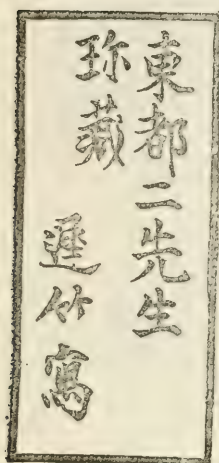 東都二先生
珎藏 竹寫